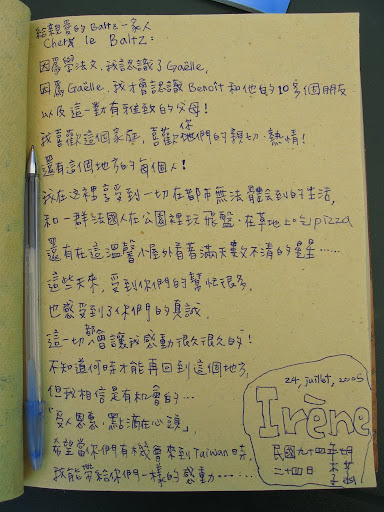 給親愛的Baltz一家人
Chery le Baltz:
因為學法文,我認識了Gaëlle,
因為Gaëlle,我才會認識Benoît和他的10多個朋友
以及這一對有雅致的父母!
我喜歡這個家族,喜歡你們的親切、熱情!
還有這個地方的每個人!
我在這裡享受到一切在都市無法體會到的生活,
和一群法國人在公園裡玩飛盤、在草地上吃pizza
還有在這溫馨小屋外看著滿天數不清的星星……
這些天來,受到你們的幫忙很多,
也感受到了你們的真誠,
這一切都會讓我感動很久很久的!
不知道何時才能再回到這個地方,
但我相信是有机會的…
「受人恩惠,點滴在心頭」
希望當你們有機會來到Taiwan時,
我能帶給你們一樣的感動……
24, juillet, 2005
Irène
民國九十四年七月
二十四日